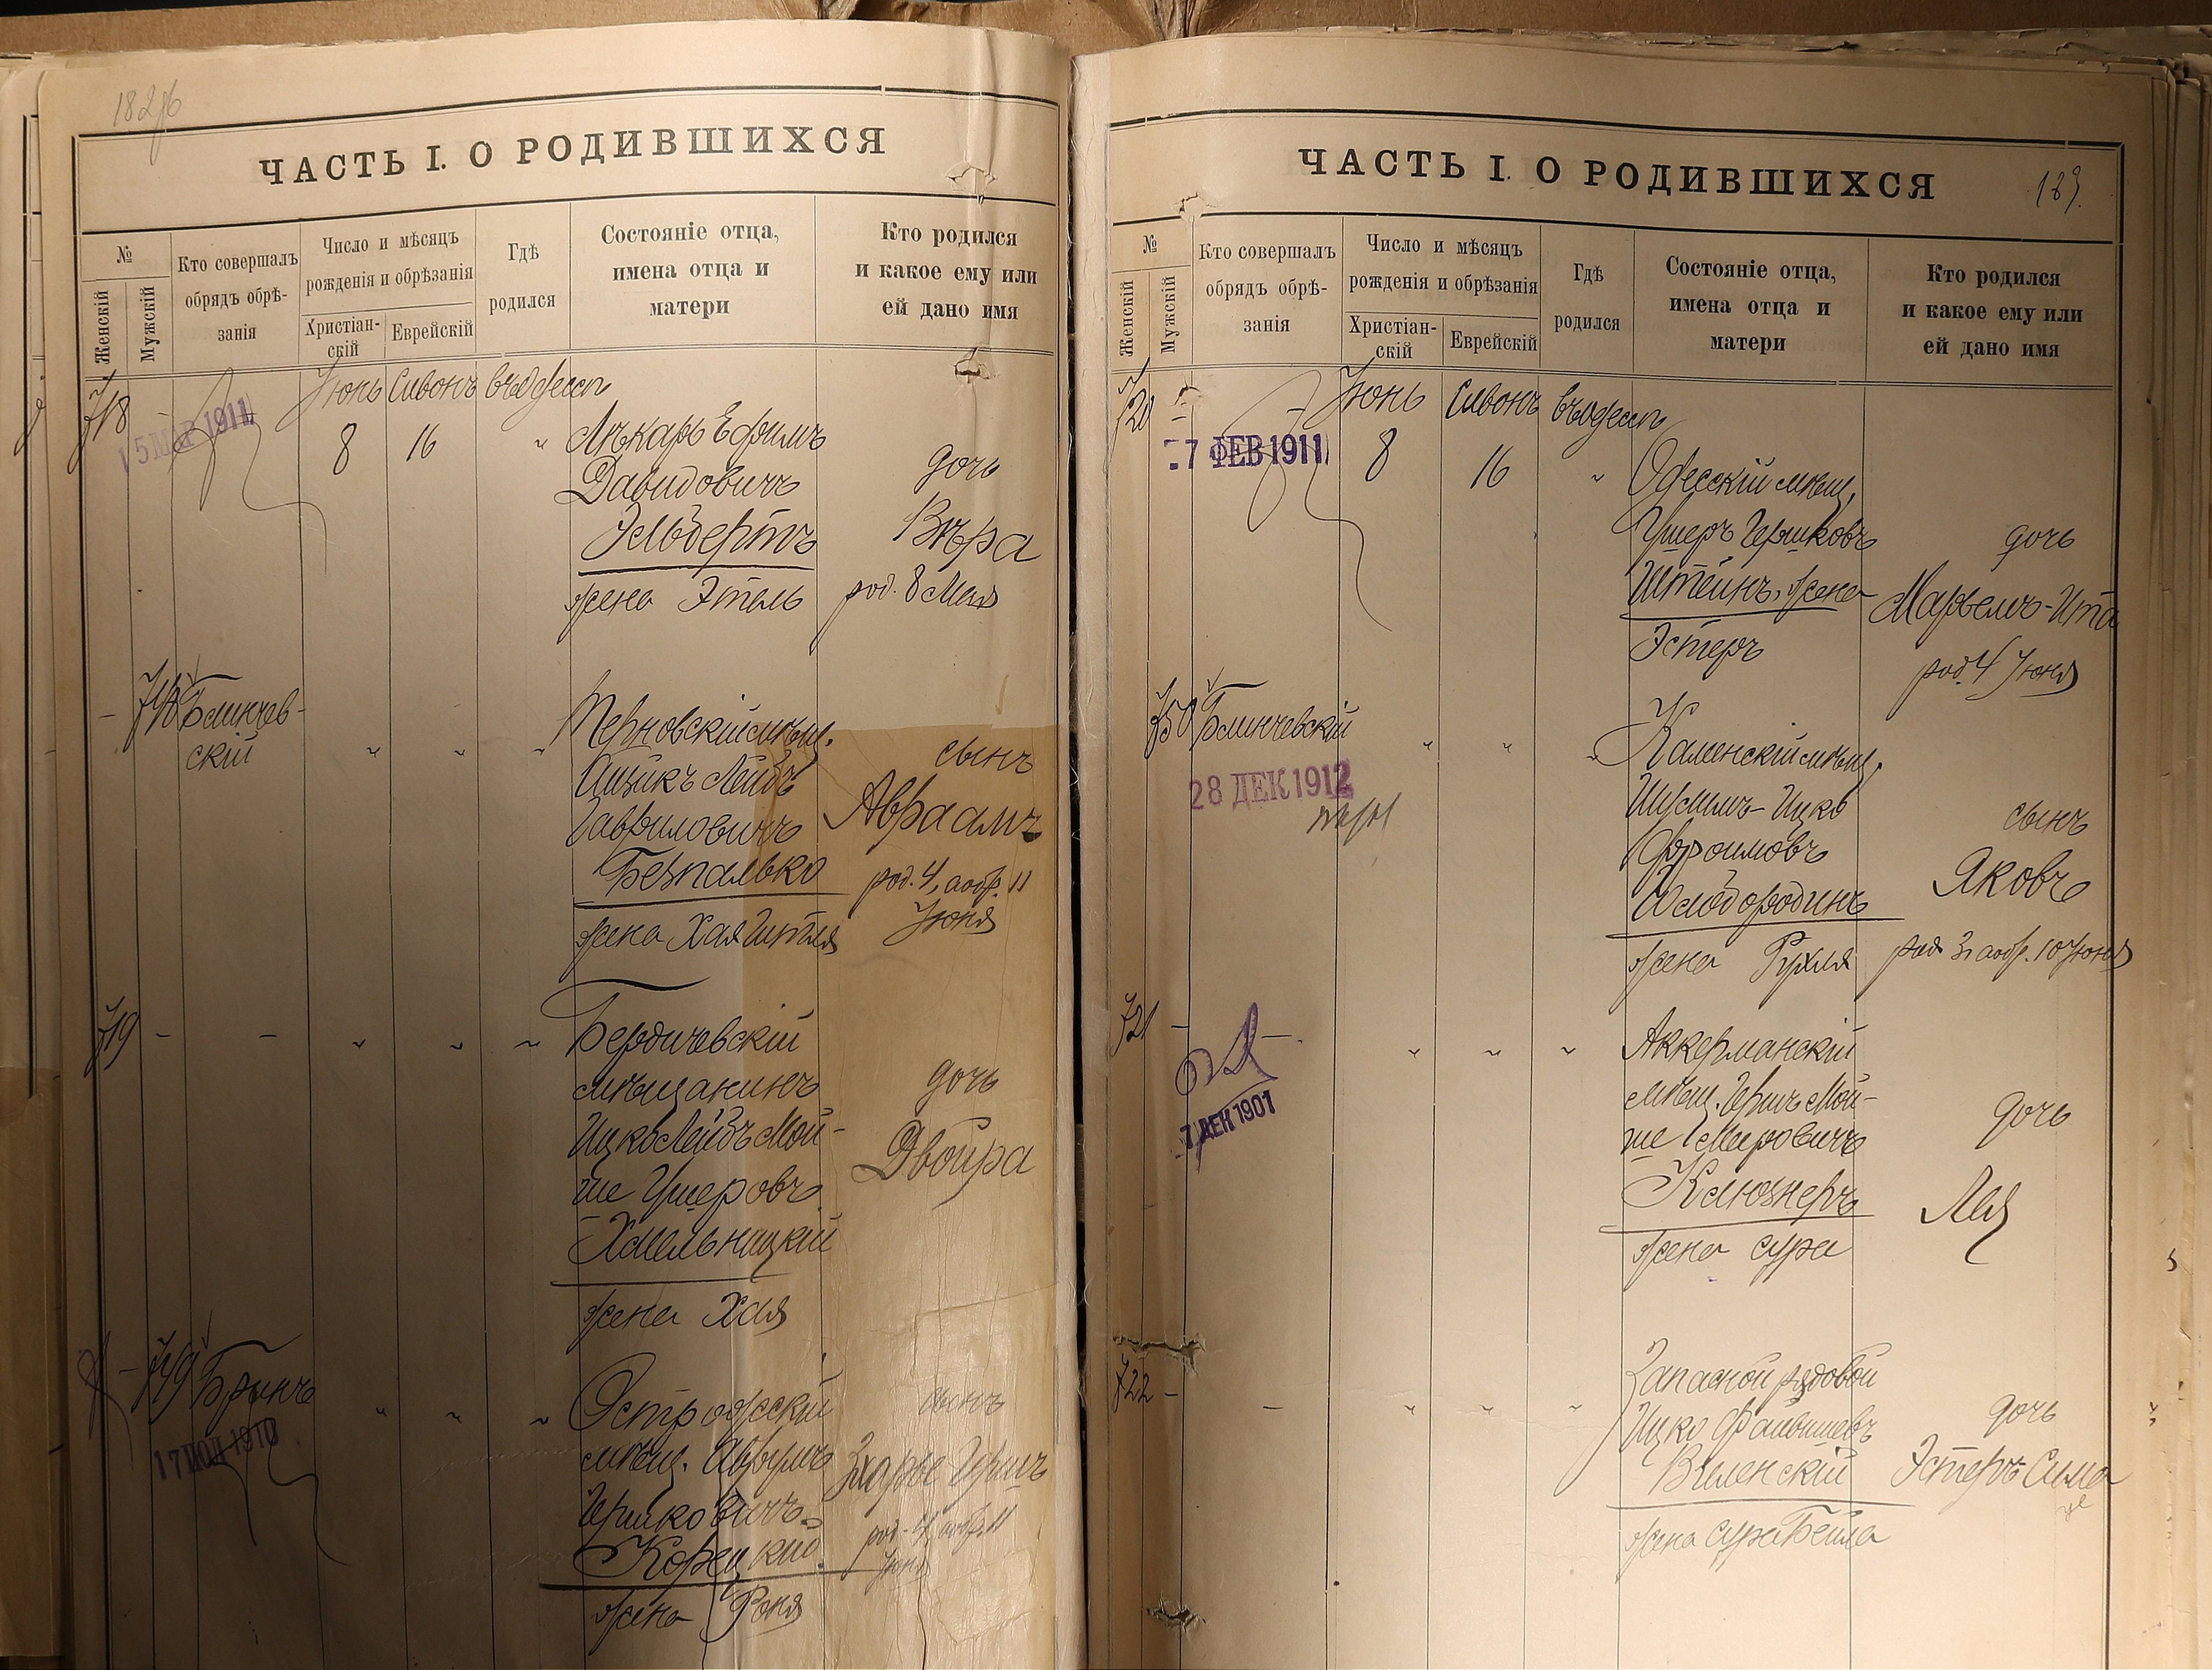 ЧАСТЬ I. О РОДИВШИХСЯ
№
Женскій
Мужскій
Кто совершалъ
обрядъ обрѣ-
занія
Число и мѣсяцъ
рожденія и обрѣзанія
Христіан-
скій
Еврейскій
Гдѣ
родился
Состояніе отца,
имена отца и
матери
Кто родился
и какое ему или
ей дано имя
718
1911
Іюнь Сивонъ въ Одессѣ
8 16 "
Лѣкарь Ефимъ
Давидовичъ
Эльбертъ
жена Этель
дочь
Вѣра
род. 8 Мая
- 748 Блинчев-
скій
" " "
Терновскій мѣщ.
Айзикъ Лейбъ
Гавриловичъ
Безпалько
жена Хая Гитля
сынъ
Авраамъ
род. 4, а обр. 11
Іюня
719 - - " " "
Бердичевскій
мѣщанинъ
Ицко Лейбъ Мой-
ше Ушеровъ
Хмельницкій
жена Хая
дочь
Двойра
- 749 Бринъ
17 1910
" " "
Острожскій
мѣщ. Аврумъ
Гершковичъ
Корецкій
жена Роня
сынъ
Герш
род. 4, а обр. 11
Іюня
ЧАСТЬ I. О РОДИВШИХСЯ
189.
№
Женскій
Мужскій
Кто совершалъ
обрядъ обрѣ-
занія
Число и мѣсяцъ
рожденія и обрѣзанія
Христіан-
скій
Еврейскій
Гдѣ
родился
Состояніе отца,
имена отца и
матери
Кто родился
и какое ему или
ей дано имя
720 -
7 ФЕВ 1911
Іюнь Сивонъ въ Одессѣ
8 16 "
Одесскій мѣщ.
Ушеръ Гершковъ
Штейнъ, жена
Эстеръ
дочь
Ита
род. 4 Іюня
750 Блинчевскій
28 ДЕК 1912
" " "
Каменскій мѣщ.
Ицко
Фроимовъ
Слободродинъ
жена Рухля
сынъ
Яковъ
род. 3, а обр. 10 Іюня
721 - -
7 ДЕК 1901
" " "
Аккерманскій
мѣщ. Гершъ Мой-
ше Меировичъ
Клюзнеръ
жена Сура
дочь
Лея
722 - - " " "
Запасной рядовой
Ицко Файвишевъ
Виленскій
жена Сура Бейла
дочь
Эстеръ Сима